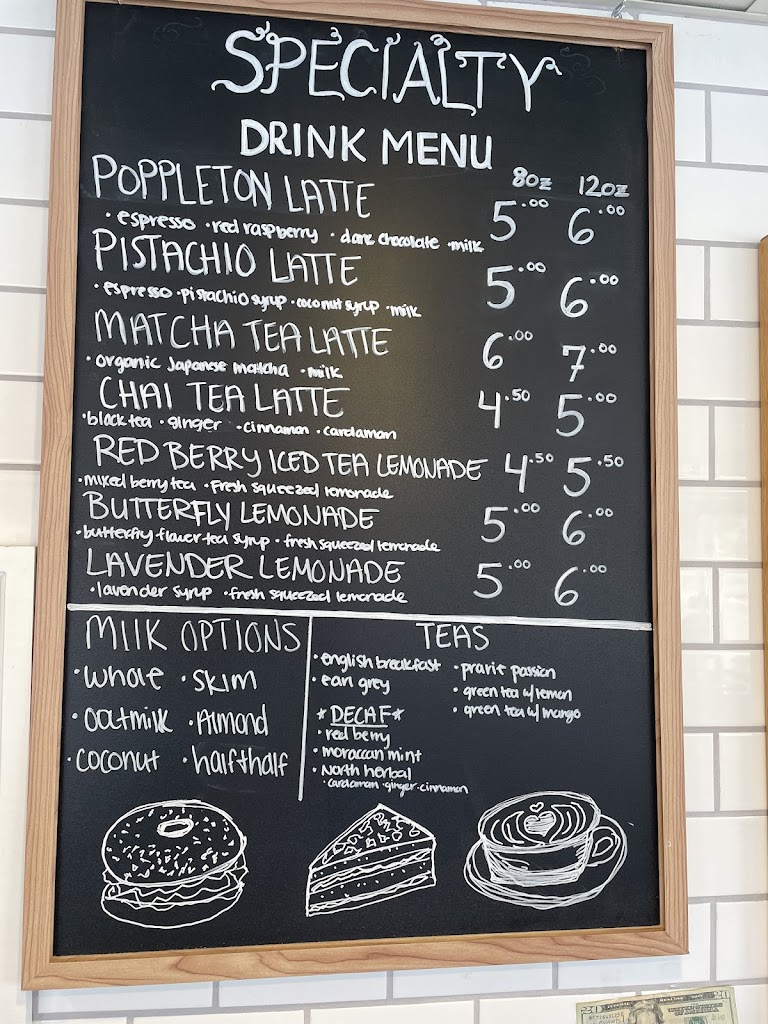 SPECIALTY
DRINK MENU
8oz 12oz
POPPLETON LATTE 5.00 6.00
• espresso • red raspberry • dark chocolate • milk
PISTACHIO LATTE 5.00 6.00
• espresso • pistachio syrup • coconut syrup • milk
MATCHA TEA LATTE 6.00 7.00
• organic Japanese matcha • milk
CHAI TEA LATTE 4.50 5.00
• black tea • ginger • cinnamon • cardaman
RED BERRY ICED TEA LEMONADE 4.50 5.50
• mixed berry tea • fresh squeezed lemonade
BUTTERFLY LEMONADE 5.00 6.00
• butterfly flower tea syrup • fresh squeezed lemonade
LAVENDER LEMONADE 5.00 6.00
• lavender syrup • fresh squeezed lemonade
MILK OPTIONS
• whole • skim
• oatmilk • Almond
• coconut • half+half
TEAS
• english breakfast • prarit passion
• earl grey • green tea w/ lemon
• green tea w/ mango
*DECAF*
• red berry
• moroccan mint
• North herbal
• cardaman • ginger • cinnamon